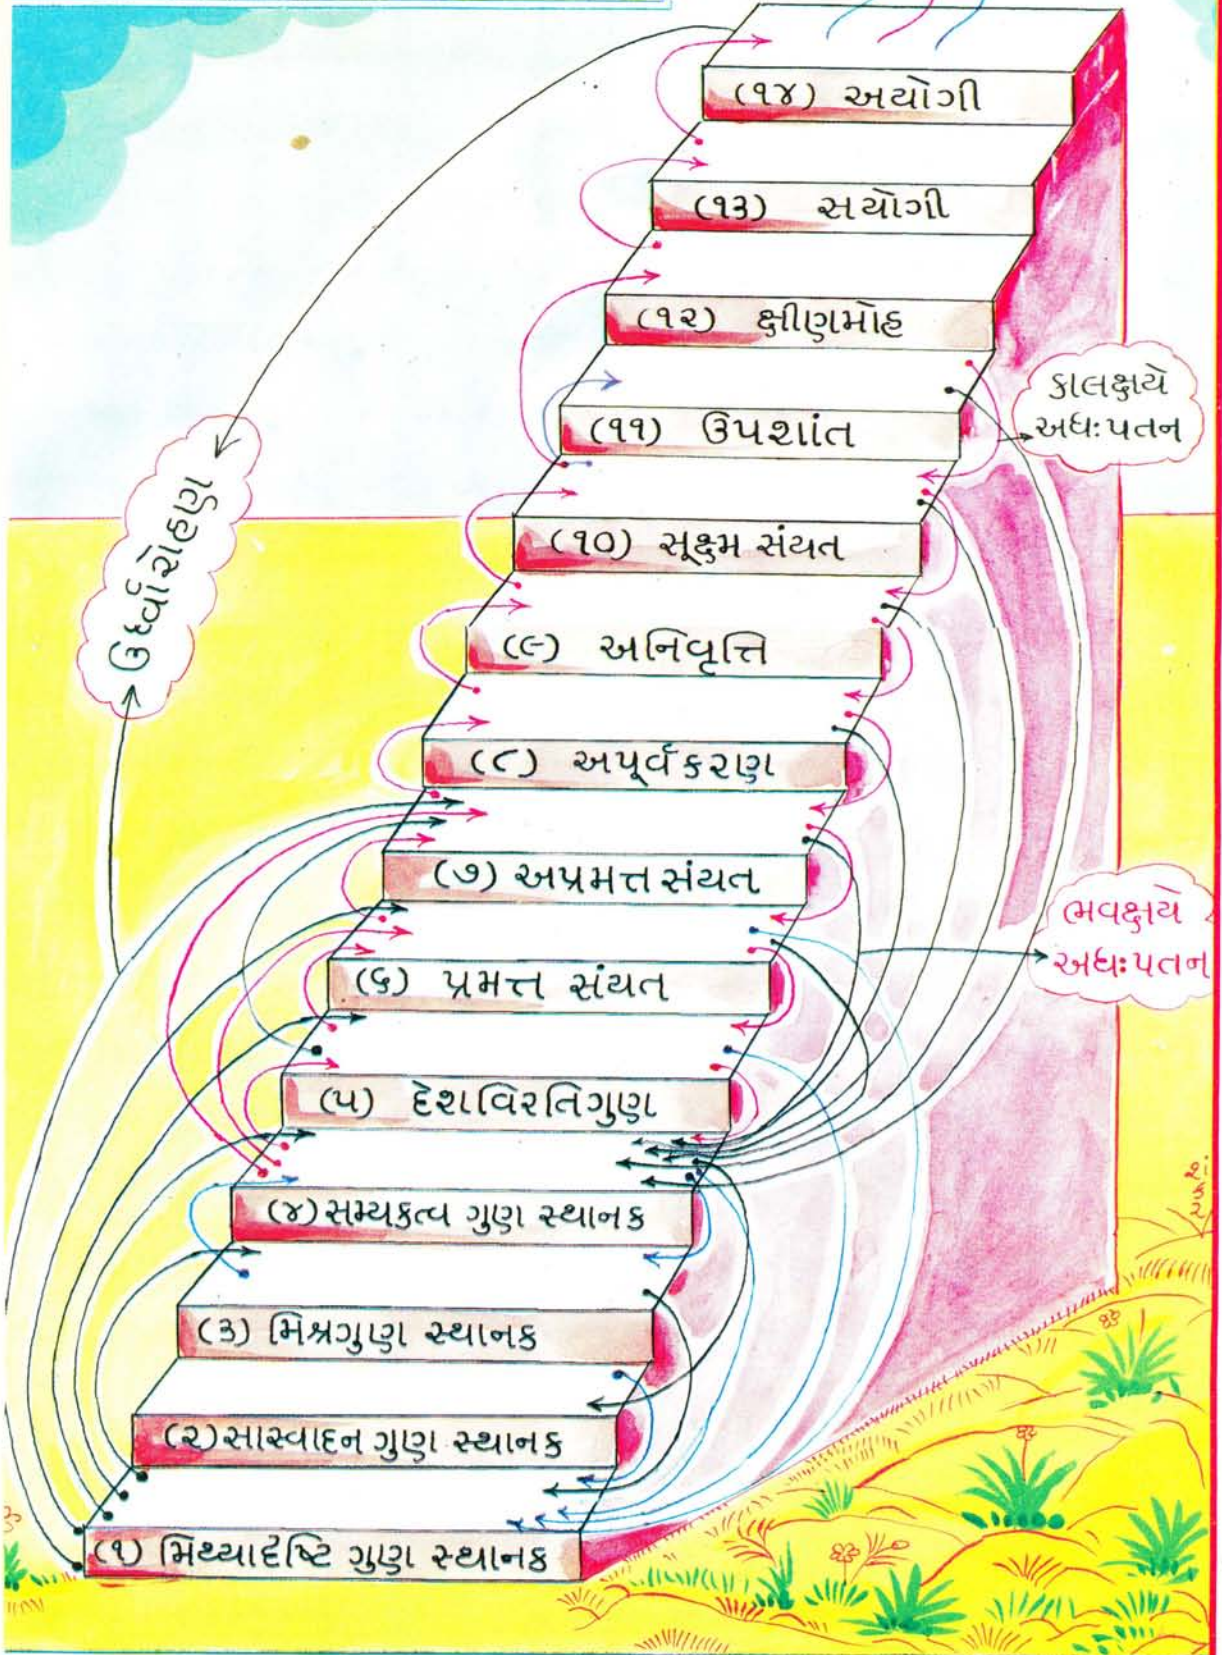 (૧૪) અયોગી
(૧૩) સયોગી
(૧૨) ક્ષીણમોહ
કાલક્ષયે
અધઃપતન
(૧૧) ઉપશાંત
ઉર્ધ્વારોહણ
(૧૦) સૂક્ષ્મ સંયત
(૯) અનિવૃત્તિ
(૮) અપૂર્વકરણ
(૭) અપ્રમત્ત સંયત
ભવક્ષયે
અધઃપતન
(૬) પ્રમત્ત સંયત
(૫) દેશવિરતિગુણ
(૪) સમ્યકત્વ ગુણ સ્થાનક
(૩) મિશ્રગુણ સ્થાનક
(૨) સાસ્વાદન ગુણ સ્થાનક
(૧) મિથ્યાર્દષ્ટિ ગુણ સ્થાનક